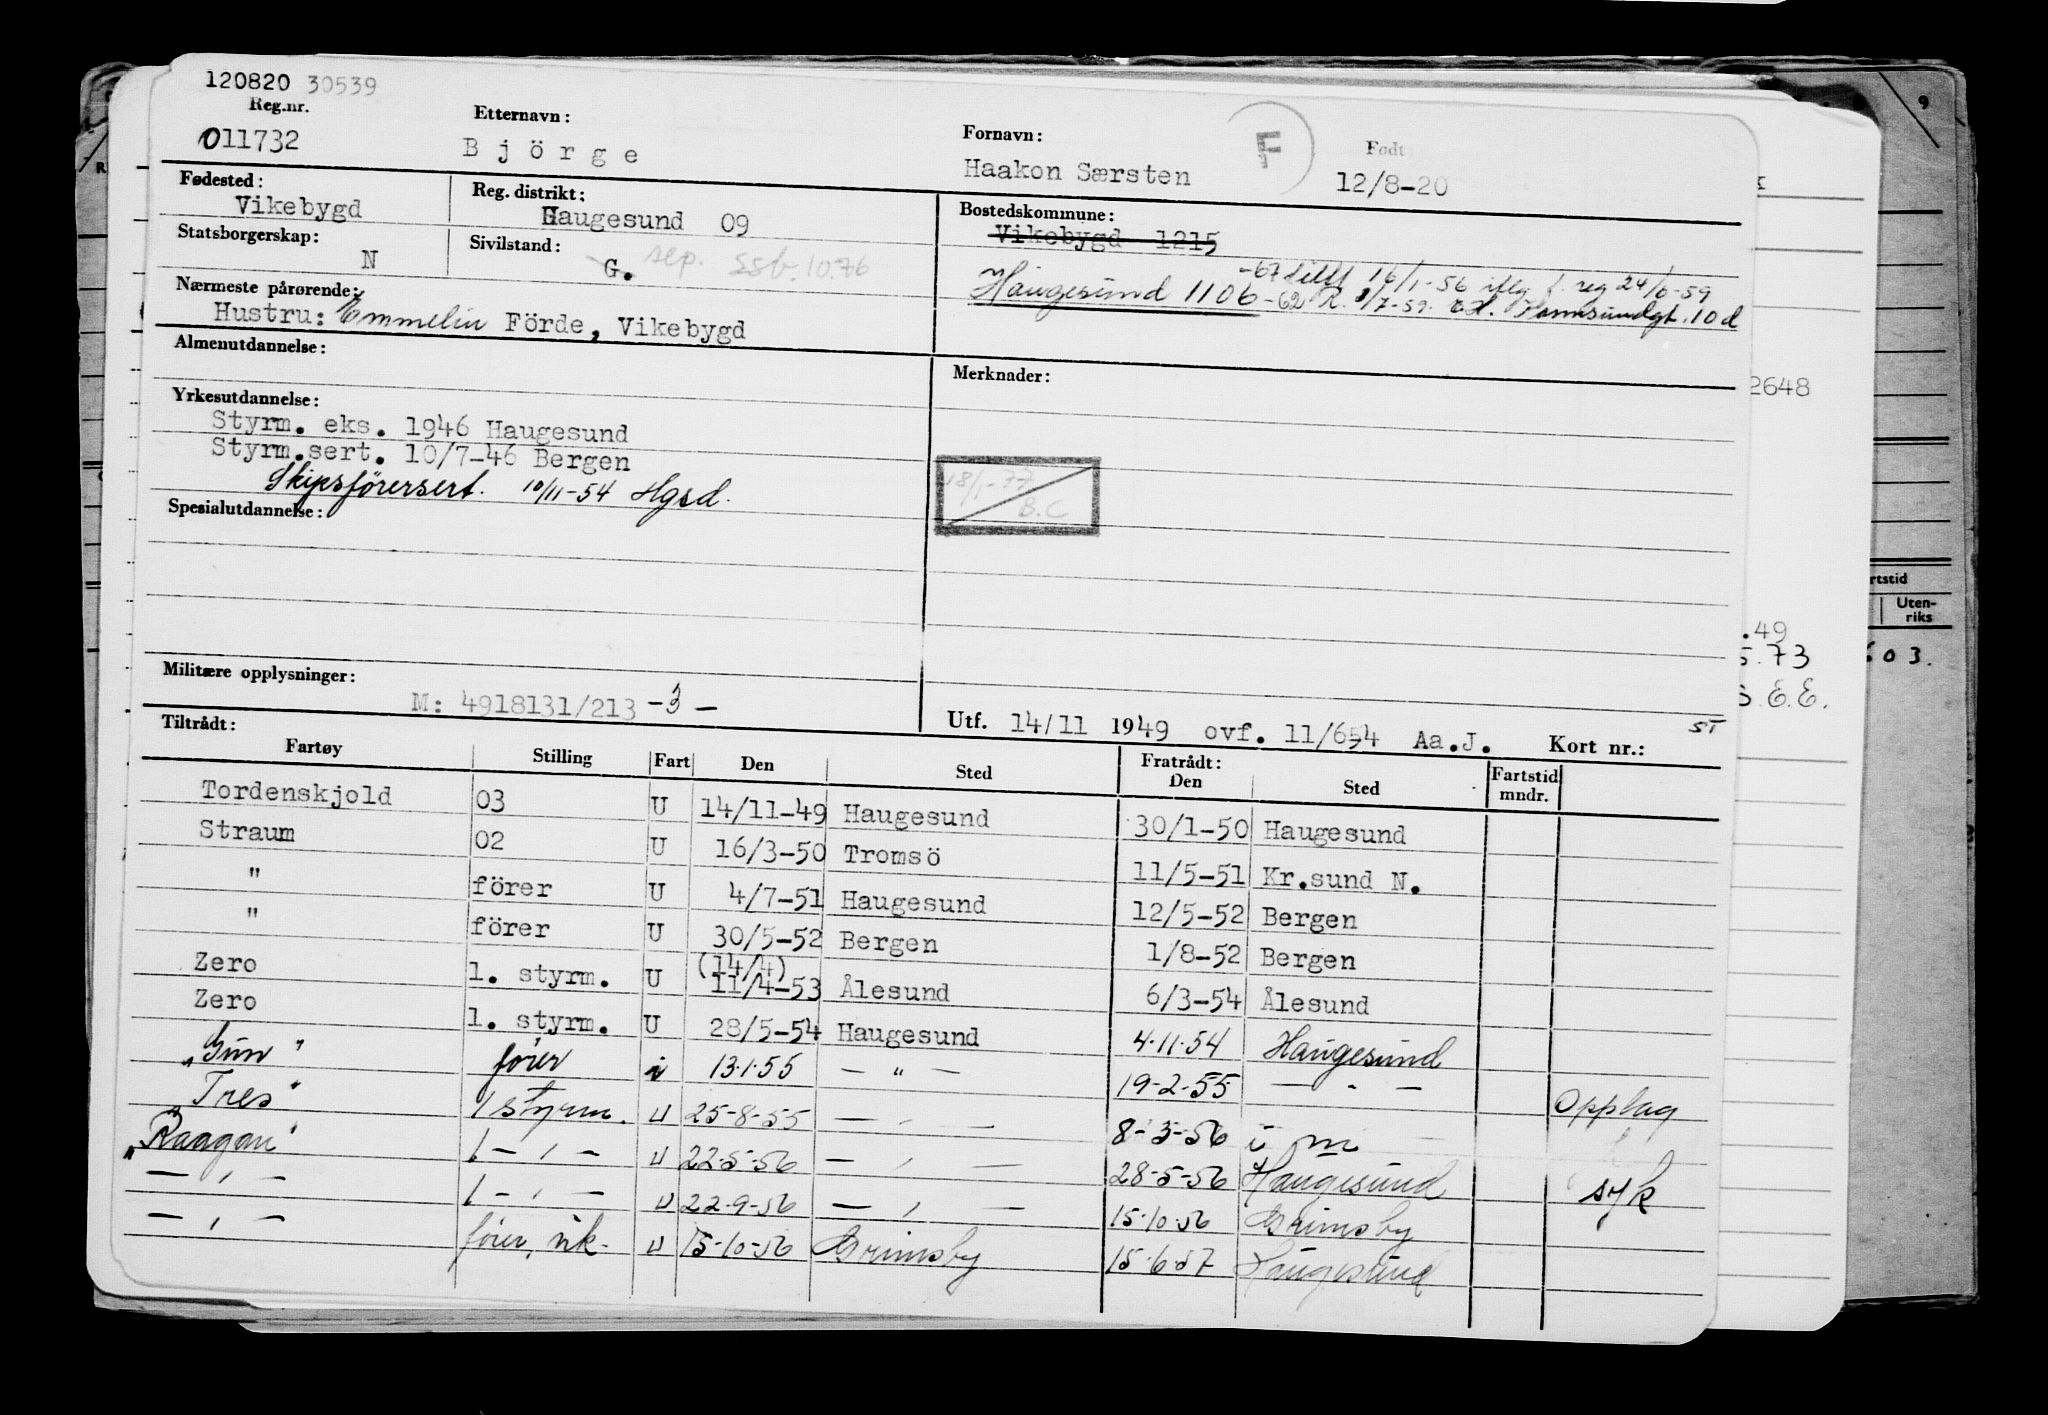 120820 30539
Reg.nr. Etternavn: Fornavn: F Født
011732 Björge Haakon Særsten 12/8-20
Fødested: Reg. distrikt: Bostedskommune:
Vikebygd Haugesund 09 Vikebygd 1215
Statsborgerskap: Sivilstand:
N G. sep. ssb. 10.76
-67 16/1-56 iflg f. reg 24/6-59
Haugesund 1106 -62 R. 7-59. 10 d
Nærmeste pårørende:
Hustru: Emmelin Förde, Vikebygd
Almenutdannelse: Merknader:
Yrkesutdannelse:
Styrm. eks. 1946 Haugesund
Styrm.sert. 10/7-46 Bergen
Skipsförersert. 10/11-54 Hgsd.
18/1-77
B.C
Spesialutdannelse:
Militære opplysninger:
M: 4918131/213 -3-
Tiltrådt: Utf. 14/11 1949 ovf. 11/654 Aa.J. Kort nr.: ST
Fartøy Stilling Fart Den Sted Fratrådt: Den Sted Fartstid mndr.
Tordenskjold 03 U 14/11-49 Haugesund 30/1-50 Haugesund
Straum 02 U 16/3-50 Tromsö 11/5-51 Kr.sund N.
" förer U 4/7-51 Haugesund 12/5-52 Bergen
" förer U 30/5-52 Bergen 1/8-52 Bergen
(14/4)
Zero 1. styrm. U 11/4-53 Ålesund 6/3-54 Ålesund
Zero 1. styrm. U 28/5-54 Haugesund 4.11.54 Haugesund
"Gun" förer i 13.1.55 — " — 19-2-55 — " — Opplag
"Tres" 1 styrm. U 25-8-55 — " — 8-3-56 i m
"Raagan" 1 — " — U 22-5-56 — " — 28-5-56 Haugesund syk
— " — 1 — " — U 22-9-56 — " — 15-10-56 Grimsby
— " — förer, vik. U 15-10-56 Grimsby 15.6.57 Haugesund
9
2648
.49
5.73
S.E.E.
rtstid
Uten-
riks
603.